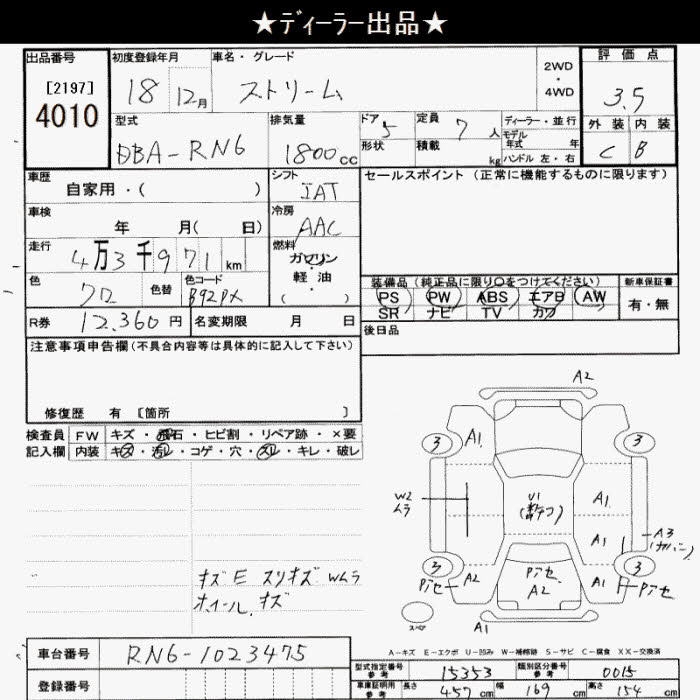 ★ディーラー出品★
出品番号 初度登録年月 車名・グレード 2WD・4WD 評価点
[2197] 18 12月 ストリーム 3.5
4010
型式 排気量 ドア 5 定員 7人 ディーラー・並行 外装 内装
DBA-RN6 1800cc 形状 積載 kg モデル年式 年 C B
ハンドル 左・右
車歴 シフト セールスポイント (正常に機能するものに限ります)
自家用・( ) IAT
車検 冷房
年 月( 日) AAC
走行 燃料
4万3千971km ガソリン・軽油・( )
色 色替 色コード 装備品(純正品に限り○をつけてください) 新車保証書
クロ B92PX PS PW ABS エアB AW 有・無
SR ナビ TV カワ
R券 12,360円 名変期限 月 日 後日品
注意事項申告欄(不具合内容等は具体的に記入して下さい)
修復歴 有 [箇所 ]
検査員 FW キズ・飛石・ヒビ割・リペア跡・×要
記入欄 内装 キズ・汚レ・コゲ・穴・スレ・キレ・破レ
A2
3 A1 3
W2 ムラ U1 A1
A1 A3
3 3
Pアセ A2 Pアセ A2 A1 Pアセ
スペア A1
キズE スリキズ Wムラ
ホイール キズ
A-キズ E-エクボ U-凹み W-補修跡 S-サビ C-腐食 XX-交換済
車台番号 RN6-1023475
登録番号
型式指定番号 参考 15353 類別区分番号 参考 0015
車庫証明用 参考 長さ 457cm 幅 169cm 高さ 154cm